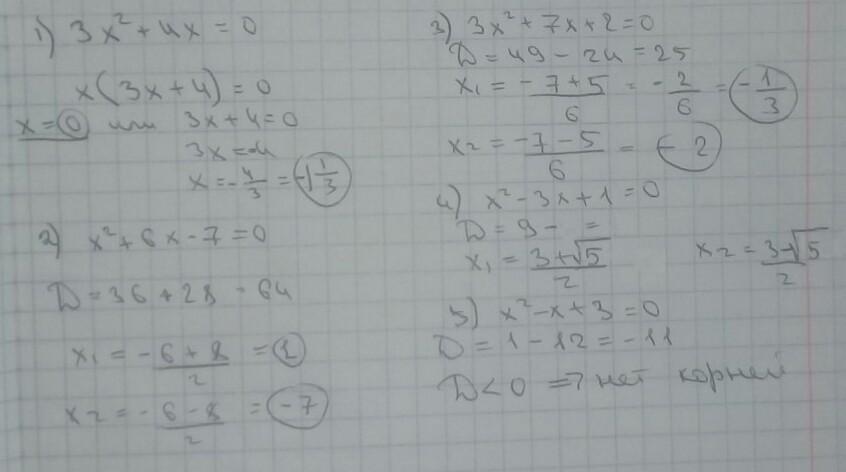 1) 3x² + 4x = 0
x(3x + 4) = 0
x = 0 или 3x + 4 = 0
3x = -4
x = -4/3 = -1 1/3
2) x² + 6x - 7 = 0
D = 36 + 28 = 64
x₁ = (-6 + 8)/2 = 1
x₂ = (-6 - 8)/2 = -7
3) 3x² + 7x + 2 = 0
D = 49 - 24 = 25
x₁ = (-7 + 5)/6 = -2/6 = -1/3
x₂ = (-7 - 5)/6 = -2
4) x² - 3x + 1 = 0
D = 9 - =
x₁ = (3 + √5)/2 x₂ = (3 - √5)/2
5) x² - x + 3 = 0
D = 1 - 12 = -11
D < 0 => нет корней